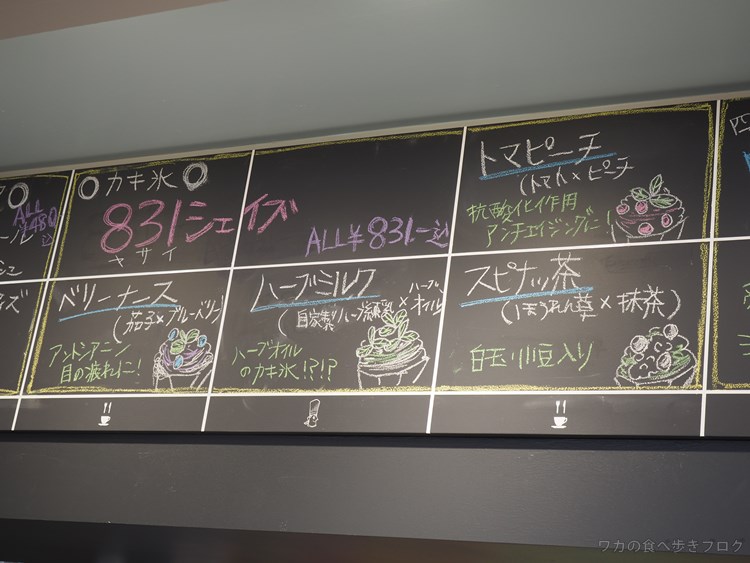 ALL
¥480
カキ氷
831シェイズ
ヤサイ
ALL¥831.-込
トマピーチ
(トマト×ピーチ
抗酸化作用
アンチエイジングに!
ベリーナース
(茄子×ブルーベリー)
アントシアニン
目の疲れに!
ハーブミルク
(自家製ハーブ練乳×ハーブオイル
ハーブオイル
のカキ氷!?!?
スピナッ茶
(ほうれん草×抹茶)
白玉小豆入り
ワカの食べ歩きブログ